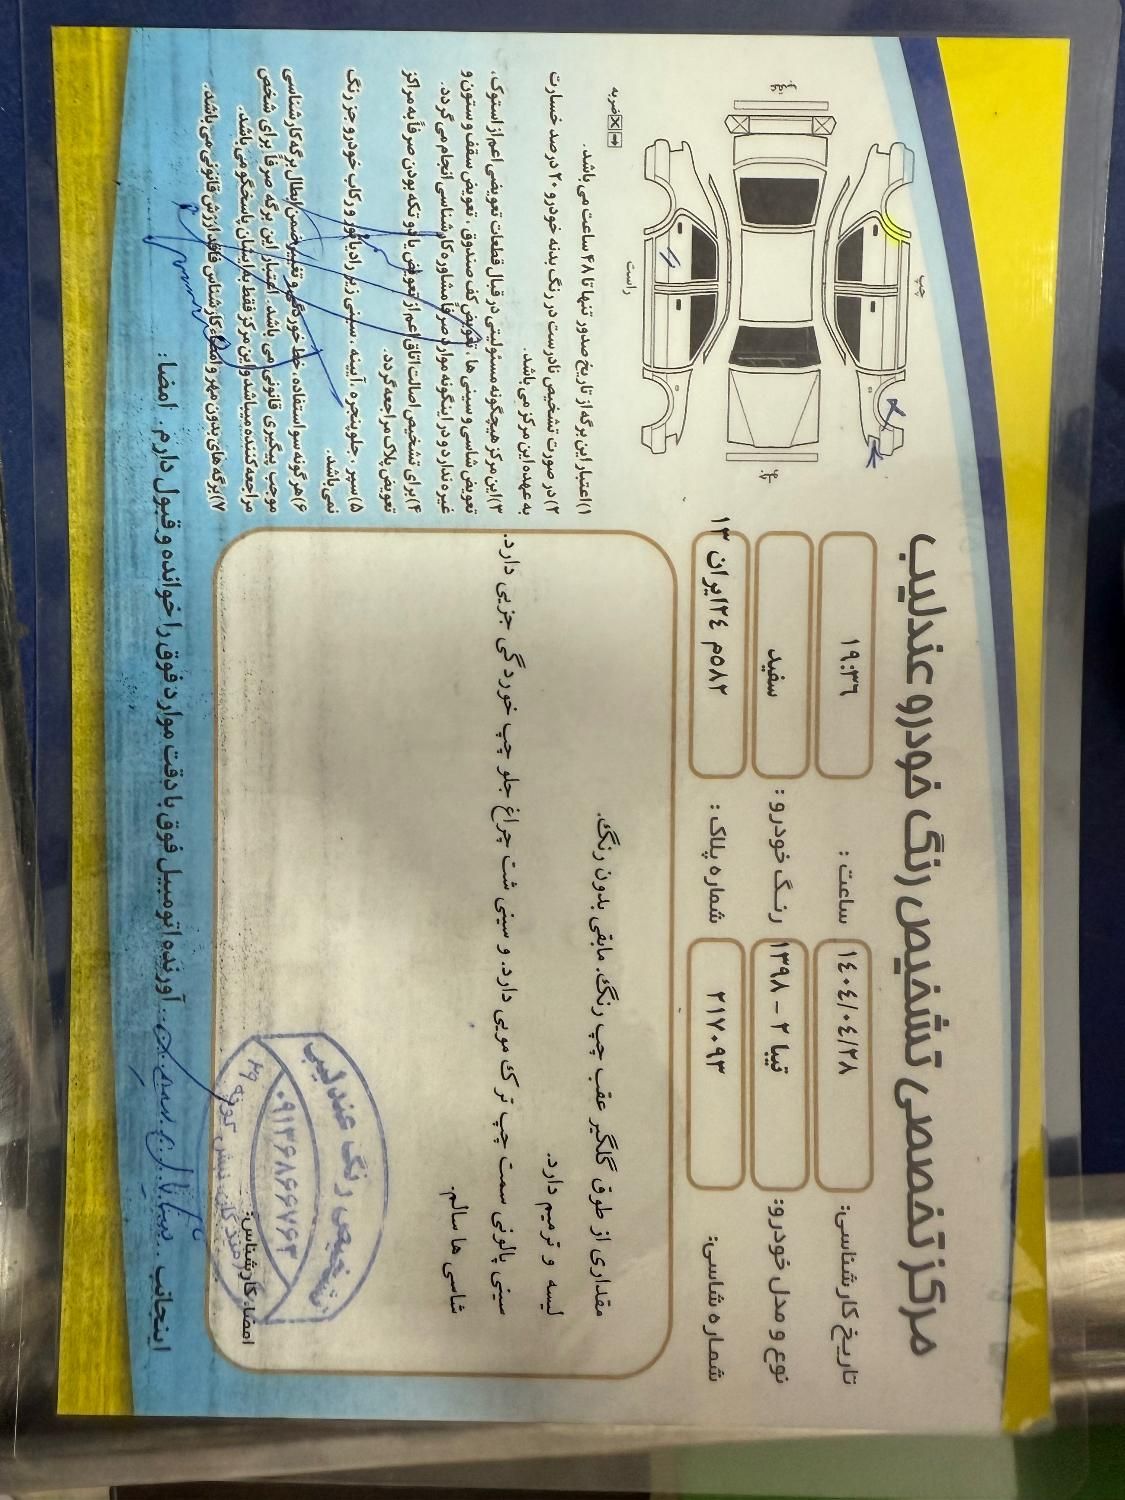 مرکز تخصصی تشخیص رنگ خودرو عندلیب
تاریخ کارشناسی: ۱۴۰۴/۰۴/۲۸ ساعت : ۱۹:۳۶
نوع و مدل خودرو: تیبا ۲ - ۱۳۹۸ رنگ خودرو : سفید
شماره شاسی: ۲۱۷۰۹۳ شماره پلاک : ۵۸۲م۲۴ایران ۱۳
مقداری از طوق گلگیر عقب چپ رنگ. مابقی بدون رنگ.
لیسه و ترمیم دارد.
سینی پالونی سمت چپ ترک مویی دارد. و سینی شت چراغ جلو چپ خوردگی جزیی دارد.
شاسی ها سالم.
امضاء کارشناس:
تشخیص رنگ عندلیب
۰۹۱۳۶۸۶۶۷۶۳
چپ
راست
ضربه
۱)اعتبار این برگه از تاریخ صدور تنها تا ۴۸ ساعت می باشد.
۲)در صورت تشخیص نادرست در رنگ بدنه خودرو ۲۰ درصد خسارت
به عهده این مرکز می باشد.
۳)این مرکز هیچگونه مسئولیتی در قبال قطعات تعویضی اعم از استوک،
تعویض شاسی و سینی ها ، تعویض کف صندوق ، تعویض سقف و ستون و
غیره ندارد و در اینگونه موارد صرفاً مشاوره کارشناسی انجام می گردد.
۴)برای تشخیص اصالت اتاق اعم از تعویض یا دو تکه بودن صرفاً به مراکز
تعویض پلاک مراجعه گردد.
۵)سپر ، جلو پنجره ، آیینه ، سینی زیر رادیاتور و رکاب خودرو جز رنگ
نمی باشد.
۶)هر گونه سو استفاده، خط خوردگی و تغییر ضمن ابطال برگه کارشناسی
موجب پیگیری قانونی می باشد. اعتبار این برگه صرفاً برای شخص
مراجعه کننده میباشد و این مرکز فقط به ایشان پاسخگو می باشد.
۷)برگه های بدون مهر و امضاء کارشناس فاقد ارزش قانونی می باشد.
اینجانب ... آورنده اتومبیل فوق با دقت موارد فوق را خوانده و قبول دارم. امضا: